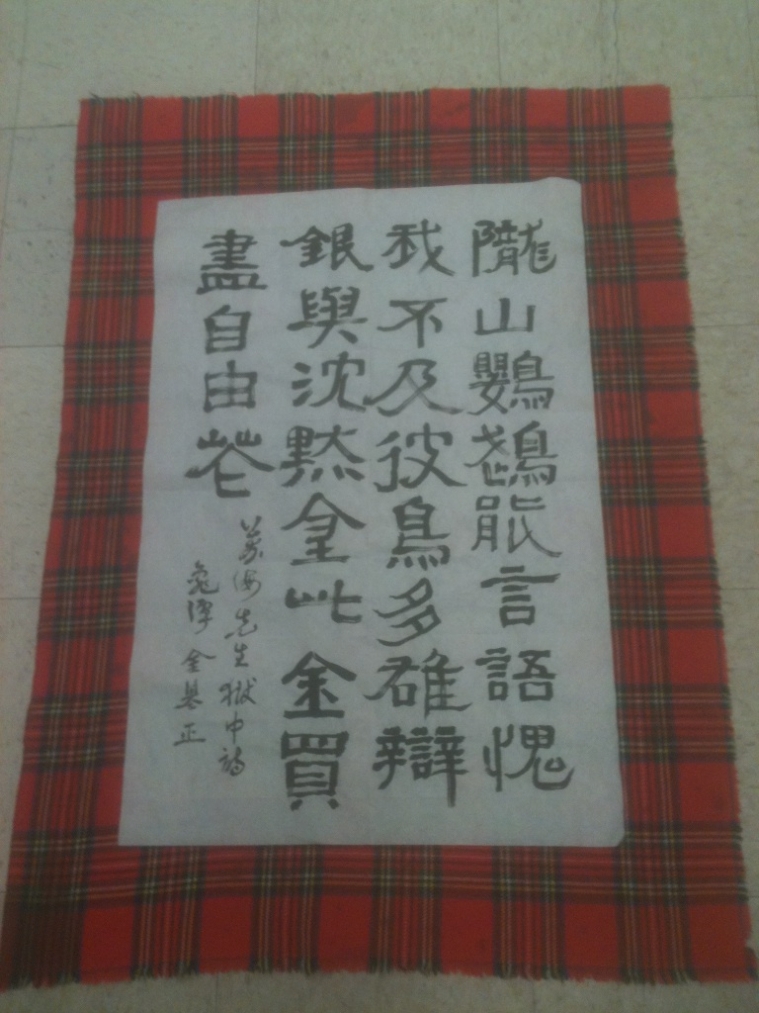 隴山鸚鵡能言語愧
我不及彼鳥多雄辯
銀與沈默金此金買
盡自由花
萬海先生獄中詩
金基正